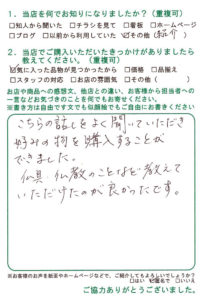 1. 当店を何でお知りになりましたか?(重複可)
□知人から聞いた □チラシを見て □看板 □ホームページ
□ブログ □以前から利用していた ☑その他(紹介)
2. 当店でご購入いただいたきっかけがありましたら
教えてください。(重複可)
☑気に入った品物が見つかったから □価格 □品揃え
□スタッフの対応 □お店の雰囲気 □その他( )
お店や商品への感想文、他店との違い、お客様から担当者への
一言などお気づきのことを何でもお寄せください。
※書き方は自由です文でも似顔絵でもご自由にお書きください
こちらの話しをよく聞いていただき
好みの物を購入することが
できました。
仏具・仏教のことなど教えて
いただけたのが良かったです。
※お客様のお声を紙面やホームページなどで、ご紹介してもよろしいでしょうか?
□はい ☑匿名で □いいえ
ご協力ありがとうございました。